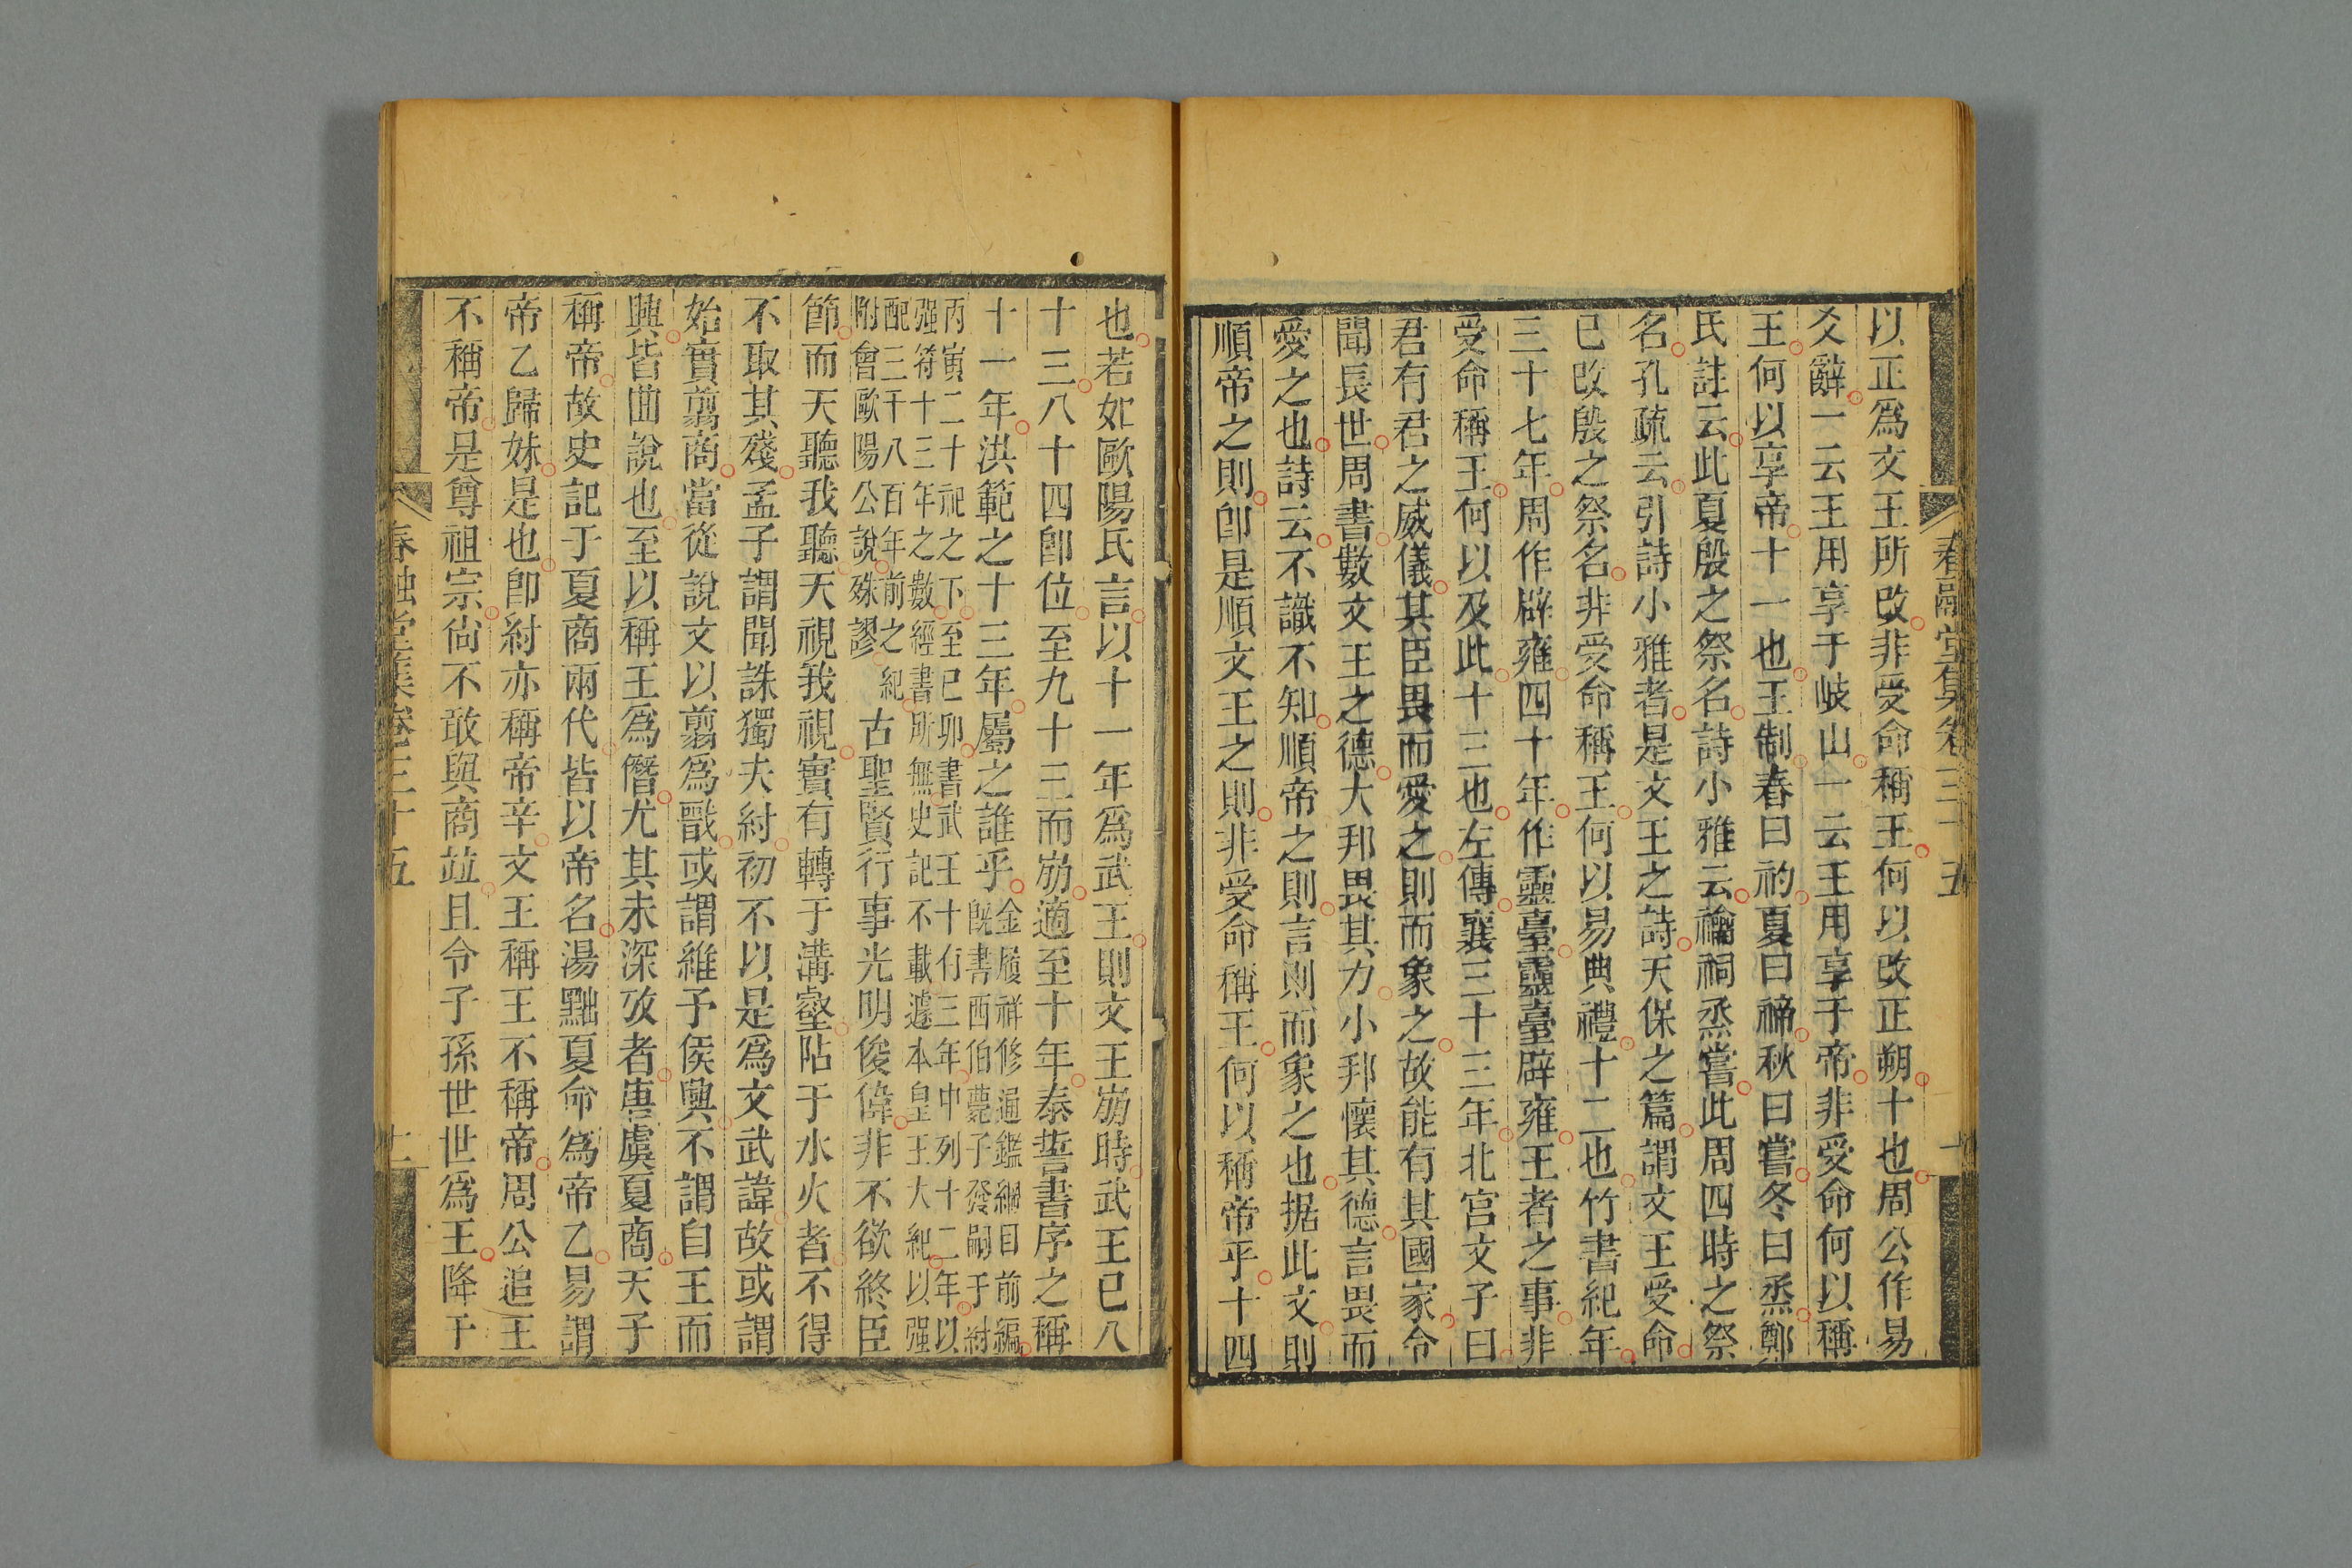 春融堂集卷三十五
以正爲文王所改非受命稱王何以改正朔十也周公作易
爻辭一云王用享于岐山一云王用享于帝非受命何以稱
王何以享帝十一也王制春曰礿夏曰禘秋曰嘗冬曰烝鄭
氏註云此夏殷之祭名詩小雅云禴祠烝嘗此周四時之祭
名孔疏云引詩小雅者是文王之詩天保之篇謂文王受命
已改殷之祭名非受命稱王何以易典禮十二也竹書紀年
三十七年周作辟雍四十年作靈臺靈臺辟雍王者之事非
受命稱王何以及此十三也左傳襄三十三年北宮文子曰
君有君之威儀其臣畏而愛之則而象之故能有其國家令
聞長世周書數文王之德大邦畏其力小邦懷其德言畏而
愛之也詩云不識不知順帝之則言則而象之也据此文則
順帝之則卽是順文王之則非受命稱王何以稱帝乎十四
也若如歐陽氏言以十一年爲武王則文王崩時武王已八
十三八十四卽位至九十三而崩適至十年泰誓書序之稱
十一年洪範之十三年屬之誰乎金履祥修通鑑綱目前編
旣書西伯薨子發嗣于紂
丙寅二十祀之下至已卯書武王十有三年中列十二年以
强符十三年之數經書所無史記不載遽本皇王大紀以强
配二千八百年前之紀
附會歐陽公說殊謬古聖賢行事光明俊偉非不欲終臣
節而天聽我聽天視我視實有轉于溝壑阽于水火者不得
不取其殘孟子謂聞誅獨夫紂初不以是爲文武諱故或謂
始實翦商當從說文以翦爲戩或謂維予侯興不謂自王而
興皆曲說也至以稱王爲僭尤其未深攷者唐虞夏商天子
稱帝故史記于夏商兩代皆以帝名湯黜夏命爲帝乙易謂
帝乙歸妹是也卽紂亦稱帝辛文王稱王不稱帝周公追王
不稱帝是尊祖宗尙不敢與商竝且令子孫世世爲王降于
春融堂集卷三十五
十一